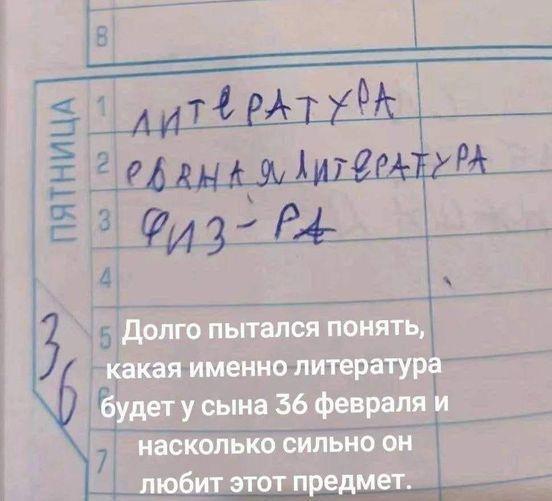 8
ПЯТНИЦА
1 ЛИТЕРАТУРА
2 ЛИТЕРАТУРА
3 ФИЗ-РА
4
36
5 Долго пытался понять,
какая именно литература
6 будет у сына 36 февраля и
насколько сильно он
7 любит этот предмет.